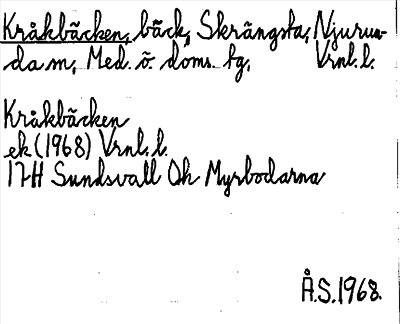 Kråkbäcken, bäck, Skrängsta, Njurun-
da sn, Med. ö. doms. tg, Vrnl. l.
Kråkbäcken
ek (1968) Vrnl. l.
17H Sundsvall Oh Myrbodarna
Å.S. 1968.